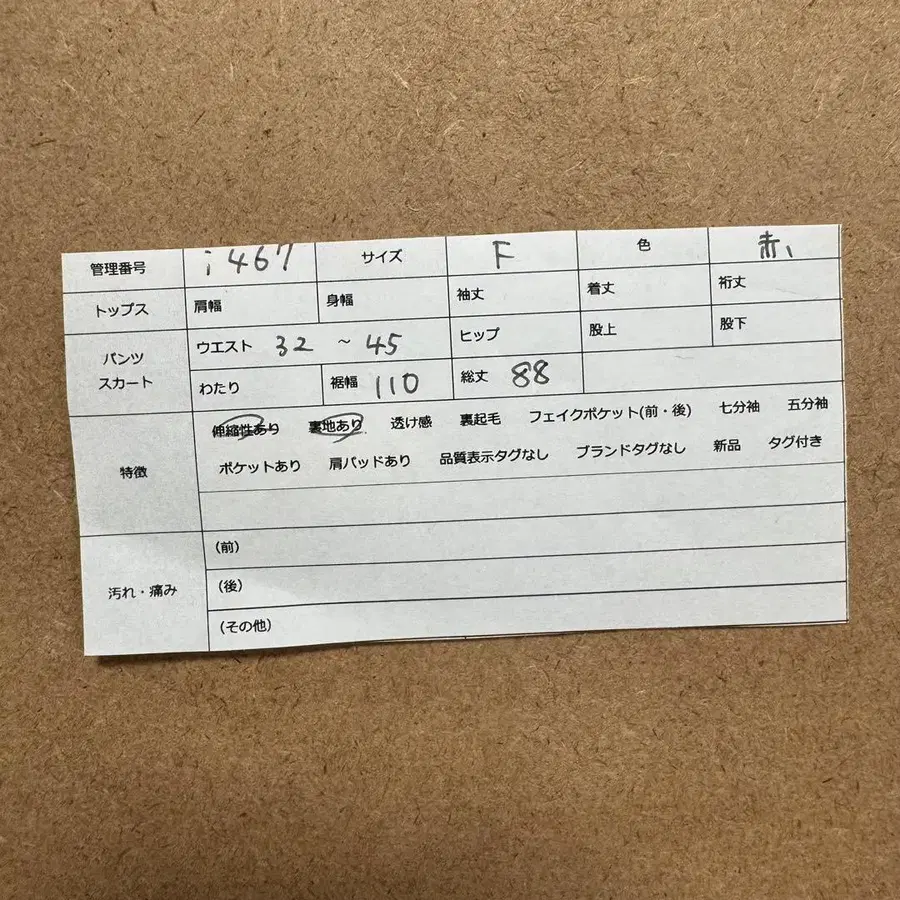 管理番号 i467 サイズ F 色 赤
トップス 肩幅 身幅 袖丈 着丈 裄丈
パンツ スカート ウエスト 32 ~ 45 ヒップ 股上 股下
わたり 裾幅 110 総丈 88
特徴 伸縮性あり 裏地あり 透け感 裏起毛 フェイクポケット(前・後) 七分袖 五分袖
ポケットあり 肩パッドあり 品質表示タグなし ブランドタグなし 新品 タグ付き
汚れ・痛み (前)
(後)
(その他)